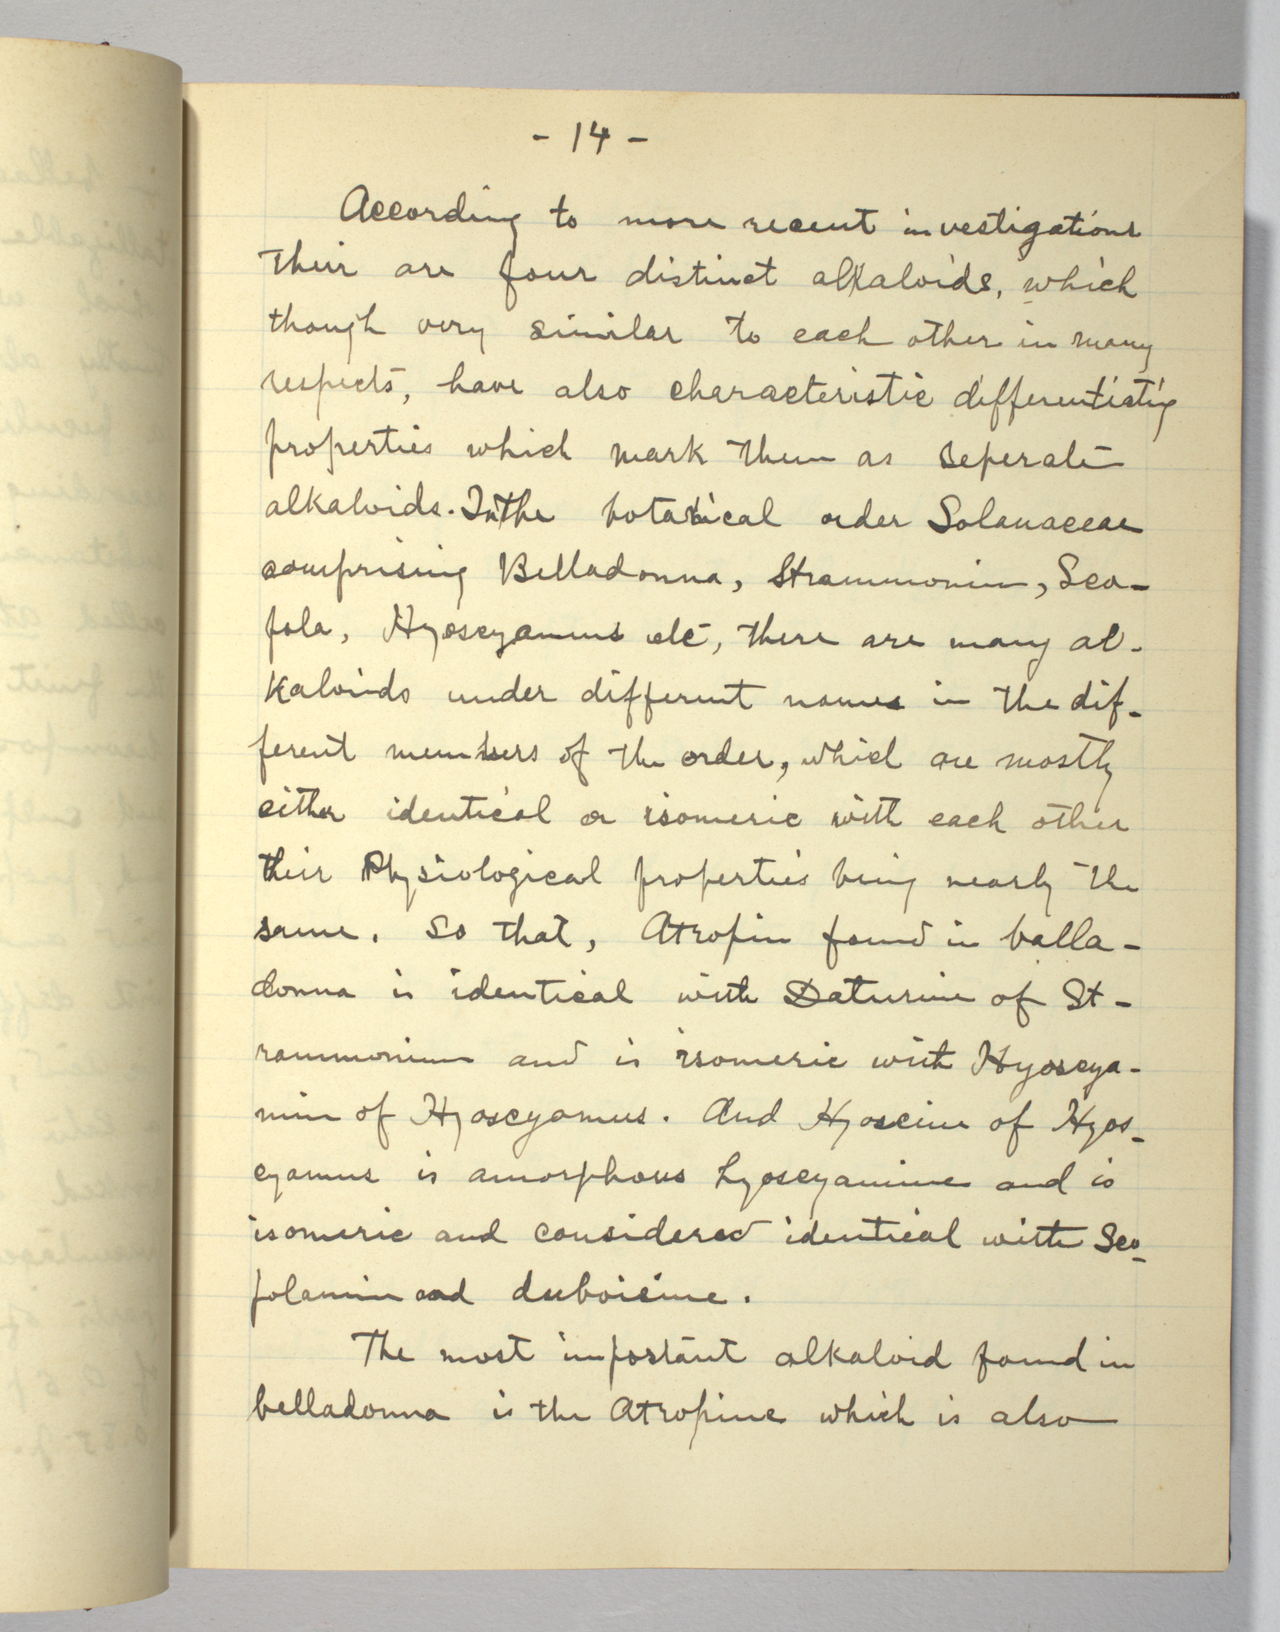 - 14 -
According to more recent investigations
their are four distinct alkaloids, which
though very similar to each other in many
respects, have also characteristic differentiating
properties which mark them as seperate
alkaloids. In the botanical order Solanaceae
comprising Belladonna, Strammonium, Sco-
pola, Hyoscyamus etc, there are many al-
kaloids under different names in the dif-
ferent members of the order, which are mostly
either identical or isomeric with each other
their Physiological properties being nearly the
same. So that, Atropin found in balla-
donna is identical with Daturine of St-
rammonium and is isomeric with Hyoscya-
min of Hyoscyamus. And Hyoscine of Hyos-
cyamus is amorphous hyoscyamine and is
isomeric and considered identical with Sco-
polamin and duboisine.
The most important alkaloid found in
belladonna is the Atropine which is also